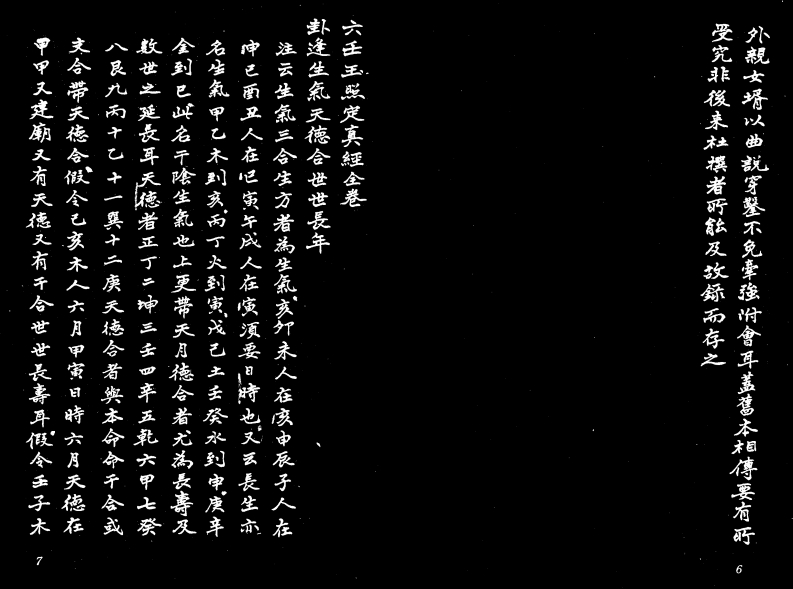 外親女壻以曲説穿鑿不免牽強附會耳蓋舊本相傳要有所
受究非後来杜撰者所能及故錄而存之
6
六壬玉照定真經全卷
卦逢生氣天德合世世長年
注云生氣三合生方者為生氣亥卯未人在亥申辰子人在
申巳酉丑人在巳寅午戌人在寅須要日時也又云長生亦
名生氣甲乙木到亥丙丁火到寅戊己土壬癸水到申庚辛
金到巳此名干陰生氣也上更帶天月德合者尤為長壽及
数世之延長耳天德者正丁二坤三壬四辛五乾六甲七癸
八艮九丙十乙十一巽十二庚天德合者與本命命干合或
支合帶天德合假令己亥木人六月甲寅日時六月天德在
甲甲又建廟又有天德又有干合世世長壽耳假令壬子木
7